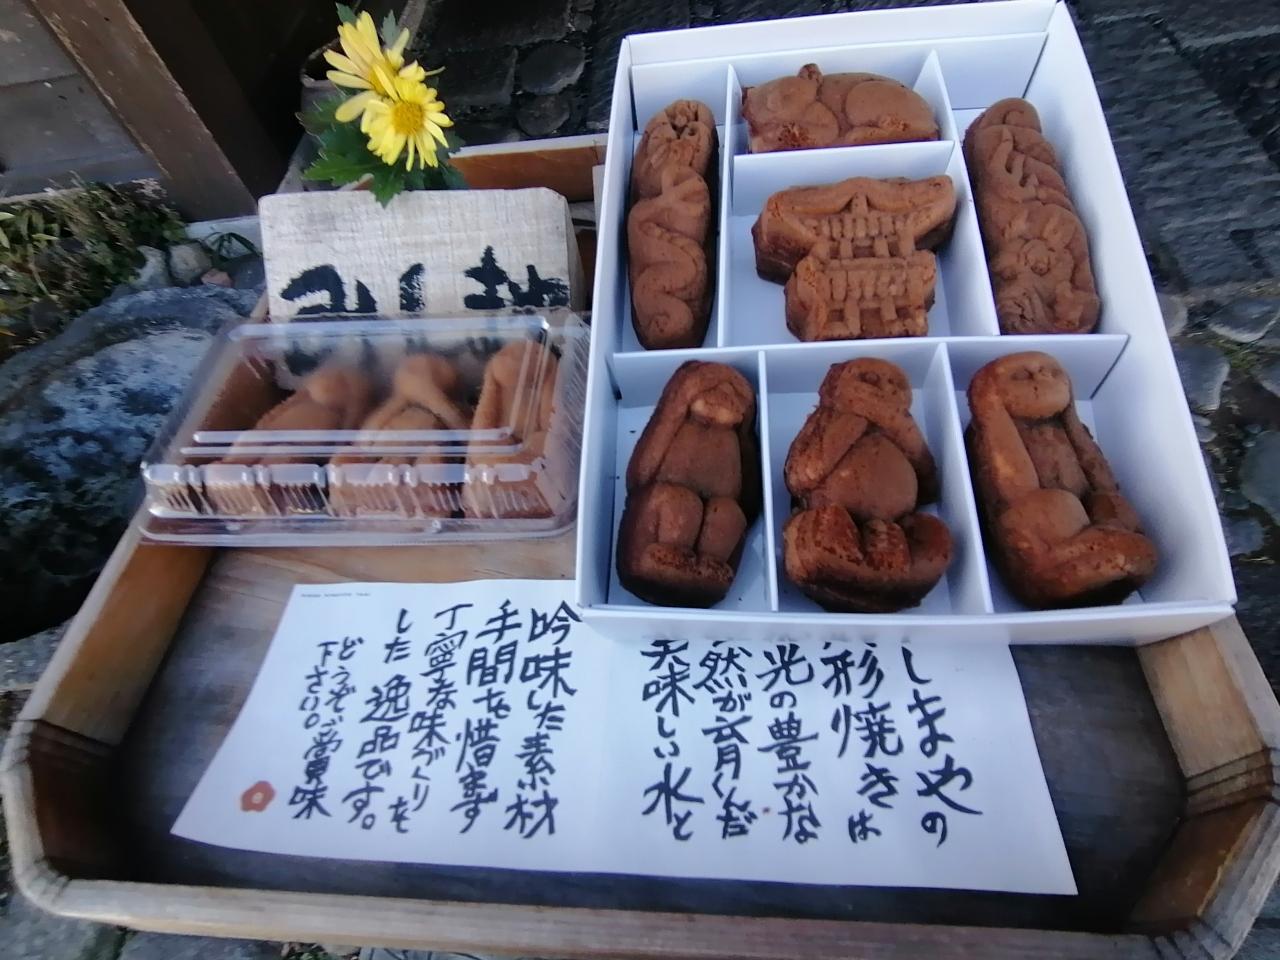 しまやの
形焼きは
光の豊かな
然が育くんだ
美味しい水と
吟味した素材
手間を惜まず
丁寧な味づくりを
した逸品です。
どうぞご賞味
下さい。